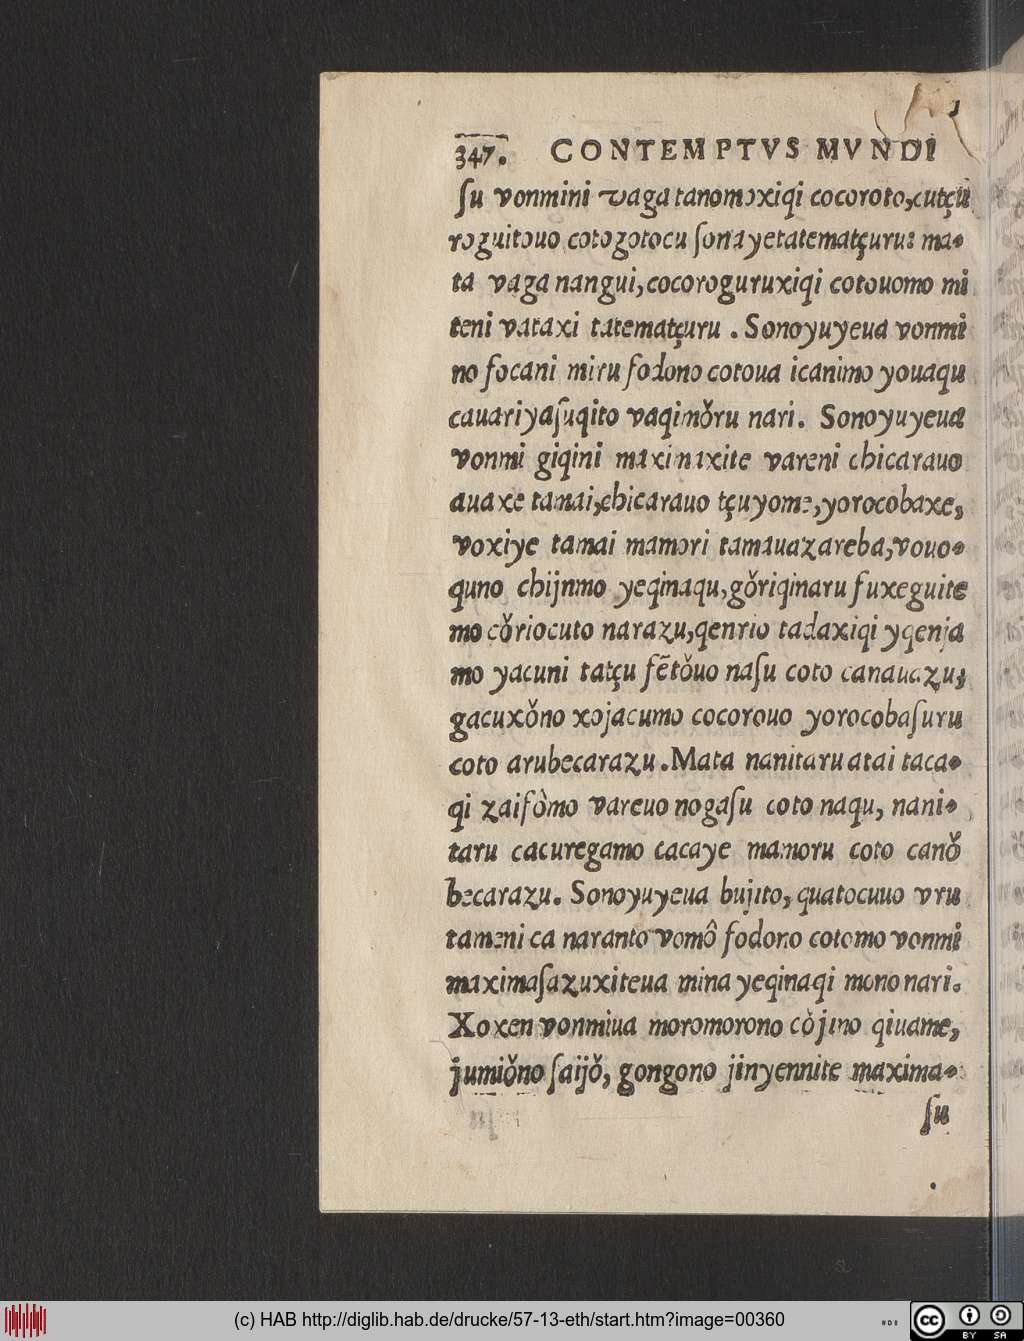 347. CONTEMPTVS MVNDI
ſu vonmini vaga tanomoxiqi cocoroto, cutçu
roguitouo cotogotocu ſonayetatematçuru: ma-
ta vaga nangui, cocoroguruxiqi cotouomo mi
teni vataxi tatematçuru . Sonoyuyeua vonmi
no focani miru fodono cotoua icanimo youaqu
cauariyaſuqito vaqimŏru nari. Sonoyuyeua
vonmi giqini maximaxite vareni chicarauo
auaxe tamai, chicarauo tçuyome, yorocobaxe,
voxiye tamai mamori tamauazareba, vouo-
quno chijnmo yeqinaqu, gŏriqinaru fuxeguite
mo cŏriocuto narazu, qenrio tadaxiqi yqenja
mo yacuni tatçu fẽtŏuo naſu coto canauazu;
gacuxŏno xojacumo cocorouo yorocobaſuru
coto arubecarazu. Mata nanitaru atai taca-
qi zaifòmo vareuo nogaſu coto naqu, nani-
taru cacuregamo cacaye mamoru coto canŏ
becarazu. Sonoyuyeua bujito, quatocuuo vru
tameni ca naranto vomô fodono cotomo vonmi
maximaſazuxiteua mina yeqinaqi mono nari.
Xoxen vonmiua moromorono còjino qiuame,
jumiŏno ſaijŏ, gongono jinyennite maxima-
ſu
(c) HAB http://diglib.hab.de/drucke/57-13-eth/start.htm?image=00360
cc BY SA